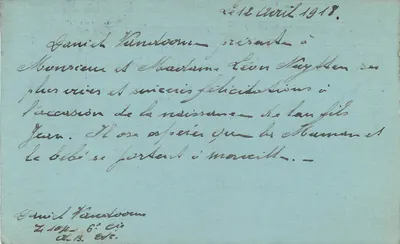 Le 12 avril 1918.
Daniel Vandoorne présente à
Monsieur et Madame Léon Nuytten ses
plus vives et sincères félicitations à
l'occasion de la naissance de leur fils
Jean. Il ose espérer que la Maman et
le bébé se portent à merveille. -
Daniel Vandoorne
6e Cie